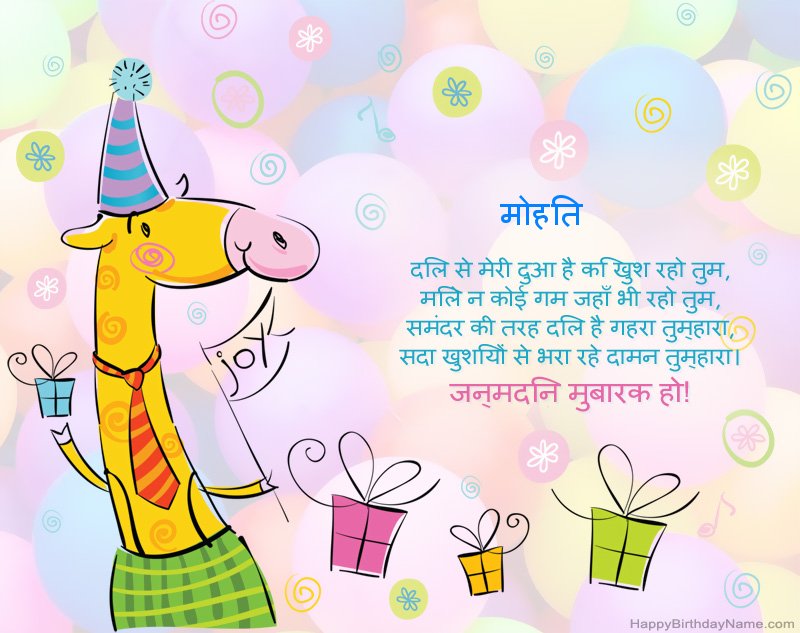 मोहति
दलि से मेरी दुआ है कि खुश रहो तुम,
मलिे न कोई गम जहाँ भी रहो तुम,
समंदर की तरह दलि है गहरा तुम्हारा,
सदा खुशयिों से भरा रहे दामन तुम्हारा।
जन्मदनि मुबारक हो!
joy
HappyBirthdayName.com